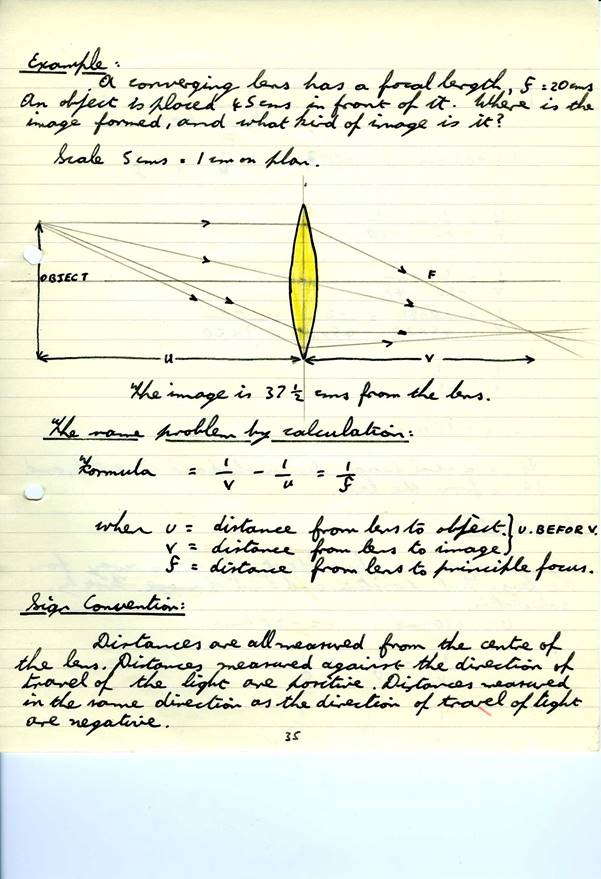 Example:
A converging lens has a focal length, f = 20 cms
An object is placed 45 cms in front of it. Where is the
image formed, and what kind of image is it?
Scale 5 cms = 1 cm on plan.
OBJECT
F
U
V
The image is 37 1/2 cms from the lens.
The same problem by calculation:
Formula = 1/v - 1/u = 1/f
when u = distance from lens to object. } U. BEFOR V.
v = distance from lens to image }
f = distance from lens to principle focus.
Sign Convention:
Distances are all measured from the centre of
the lens. Distances measured against the direction of
travel of the light are positive. Distances measured
in the same direction as the direction of travel of light
are negative.
35